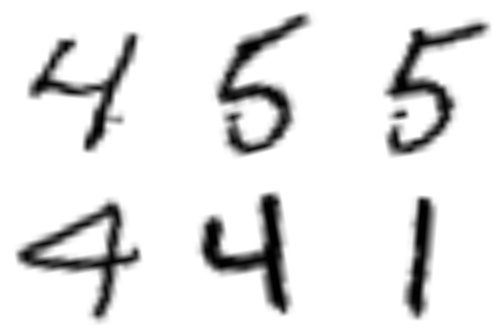 4 5 5
4 4 1